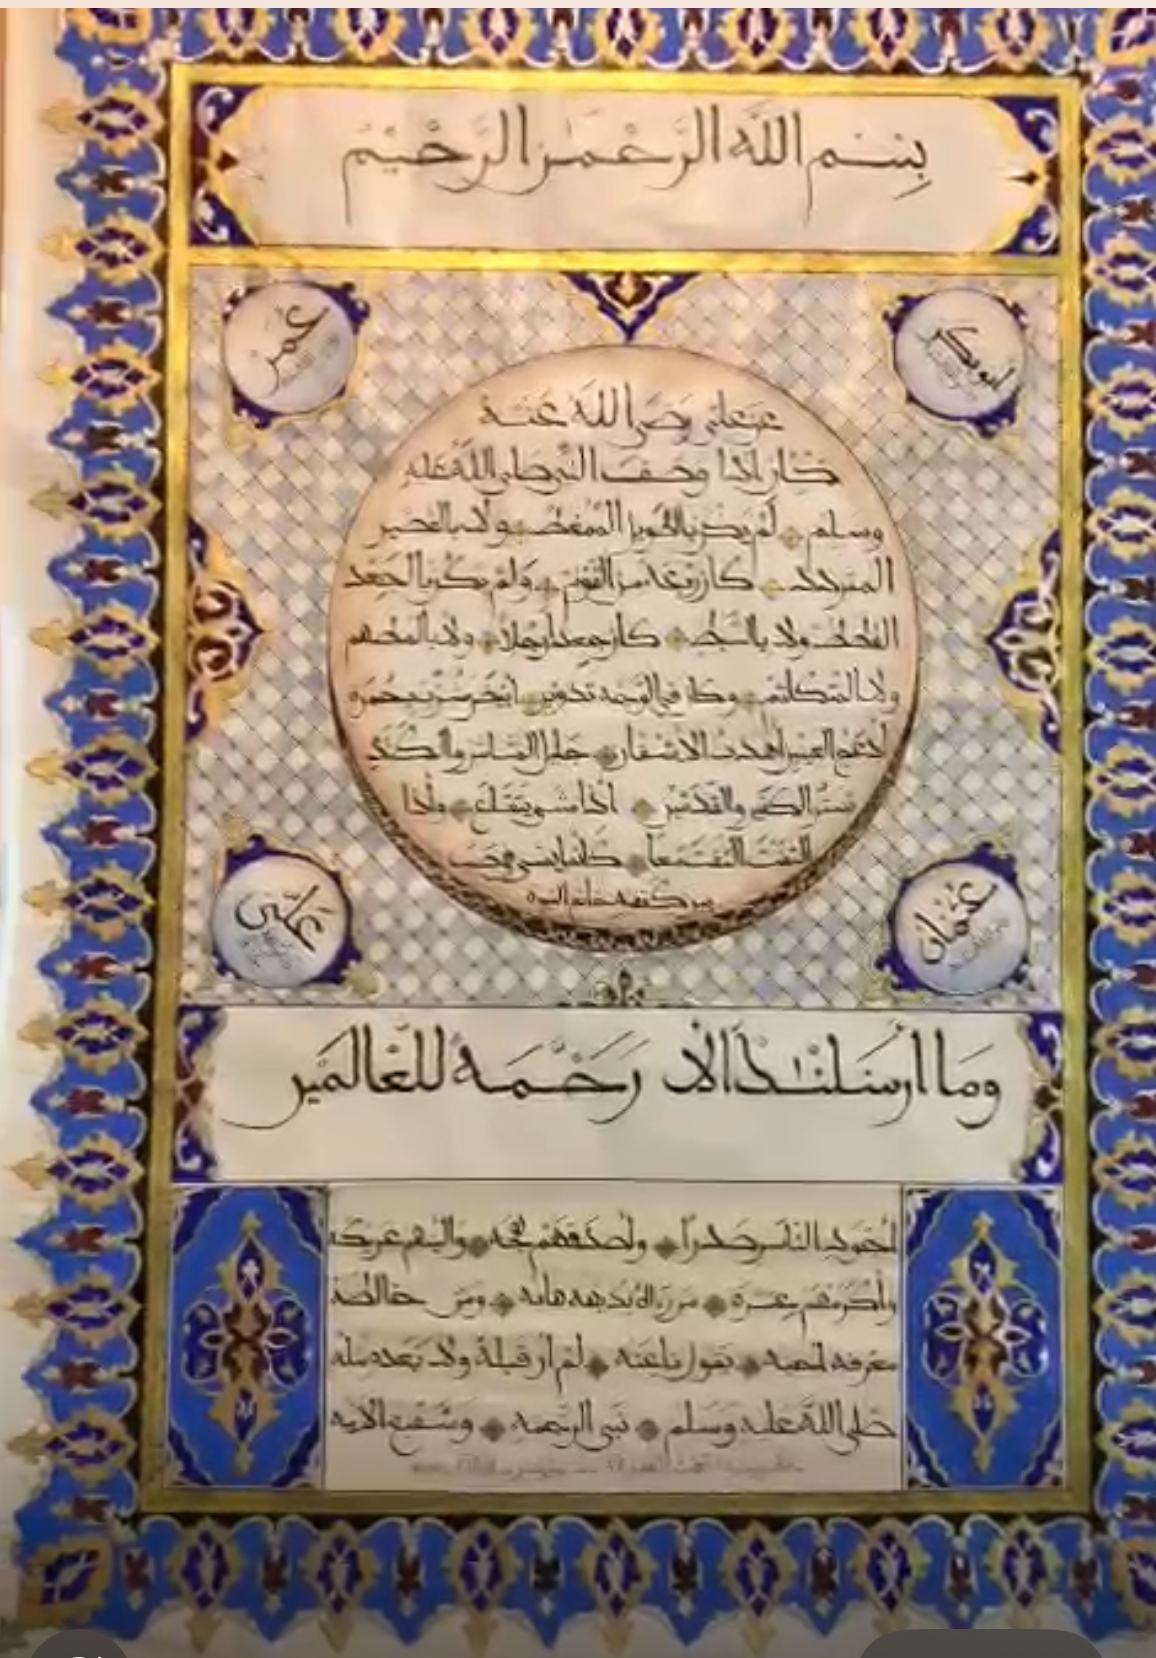 بِسْمِ اللَّهِ الرَّحْمَٰنِ الرَّحِيمِ
أبو بكر
عُمَر
عن علي رضي الله عنه
كان إذا وصف النبي صلى الله عليه
وسلم لم يكن بالطويل الممغط ولا بالقصير
المتردد كان ربعة من القوم ولم يكن بالجعد
القطط ولا بالسبط كان جعدا رجلا ولا بالمطهم
ولا بالمكلثم وكان في الوجه تدوير أبيض مشرب بحمرة
أدعج العينين أهدب الأشفار جليل المشاش والكتد
شثن الكفين والقدمين إذا مشى يتقلع وإذا
التفت التفت معا كأنما يمشي في صبب
بين كتفيه خاتم النبوة
عثمان
علي
وَمَا أَرْسَلْنَٰكَ إِلَّا رَحْمَةً لِلْعَالَمِين
الناس صدرا وأصدقهم لهجة وألينهم عريكة
وأكرمهم عشرة من رآه بديهة هابه ومن خالطه
معرفة أحبه يقول ناعته لم أر قبله ولا بعده مثله
صلى الله عليه وسلم نبي الرحمة وشفيع الأمة